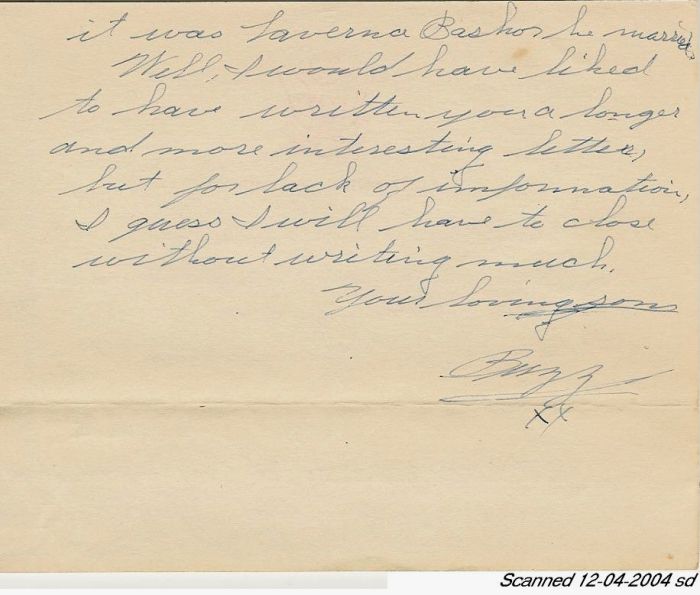 it was Laverna Bashor he married.
Well, I would have liked
to have written you a longer
and more interesting letter,
but for lack of information,
I guess I will have to close
without writing much.
Your loving son
Buzz
XX
Scanned 12-04-2004 sd